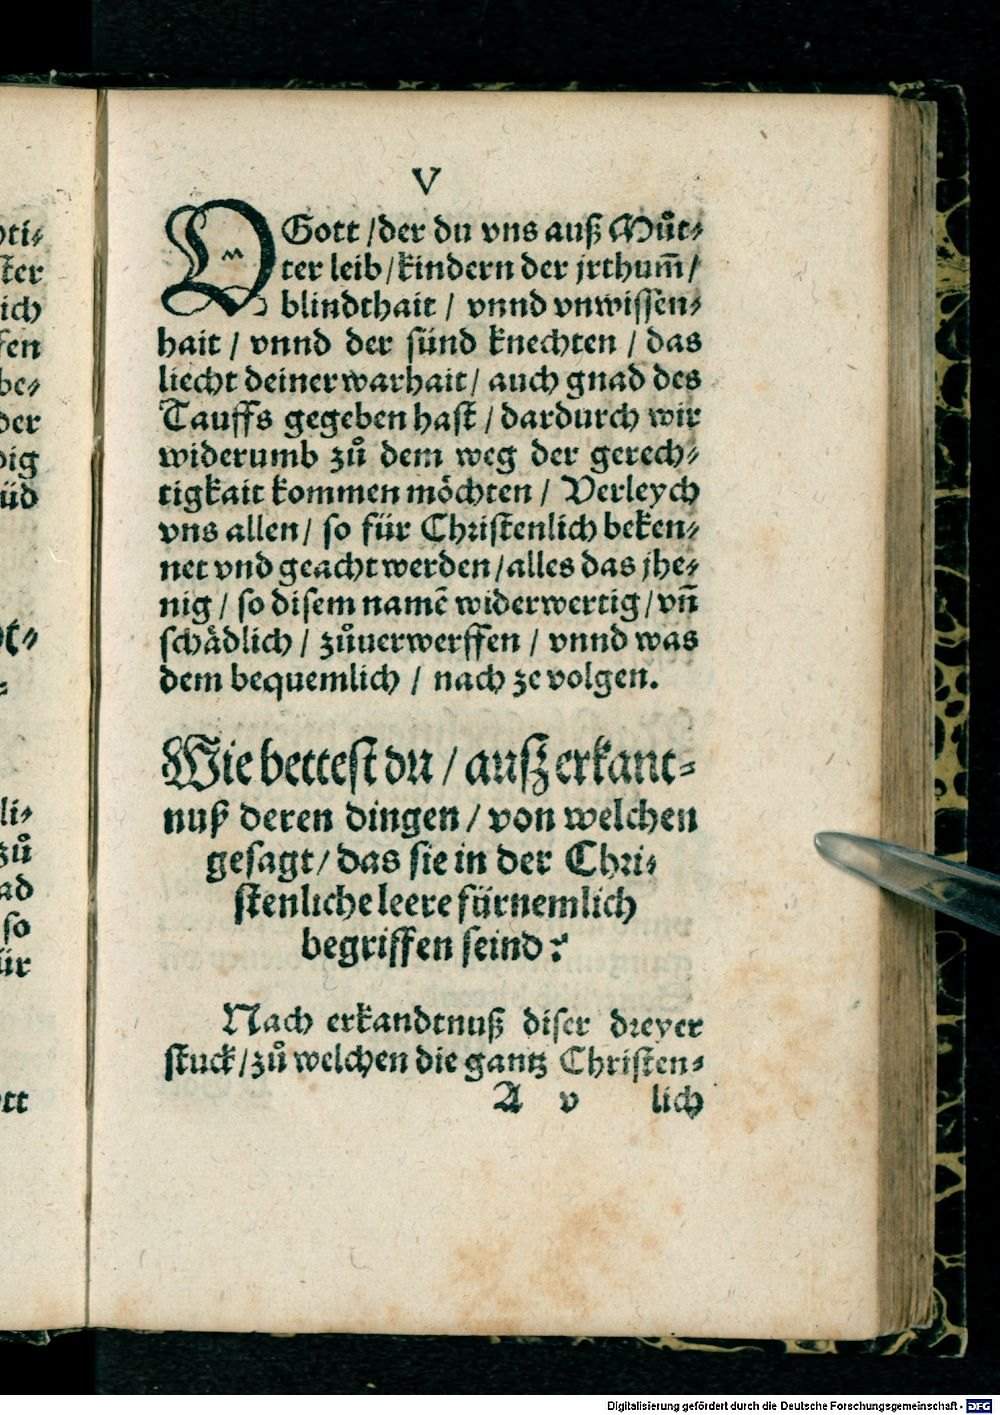 V
O Gott /der du vns auß Můt⸗
ter leib /kindern der jrthum̃ /
blindthait / vnnd vnwissen⸗
hait / vnnd der sünd knechten / das
liecht deiner warhait/ auch gnad des
Tauffs gegeben hast / dardurch wir
widerumb zů dem weg der gerech⸗
tigkait kommen möchten / Verleych
vns allen / so für Christenlich beken⸗
net vnd geacht werden /alles das jhe⸗
nig / so disem namẽ widerwertig /vñ
schädlich / zůuerwerffen / vnnd was
dem bequemlich / nach ze volgen.
Wie bettest du / auß erkant⸗
nuß deren dingen / von welchen
gesagt / das sie in der Chri⸗
stenliche leere fürnemlich
begriffen seind?
Nach erkandtnuß diser dreyer
stuck /zů welchen die gantz Christen⸗
A v lich
ster
lich
fen
be⸗
der
dig
li⸗
zů
so
für
Digitalisierung gefördert durch die Deutsche Forschungsgemeinschaft - DFG